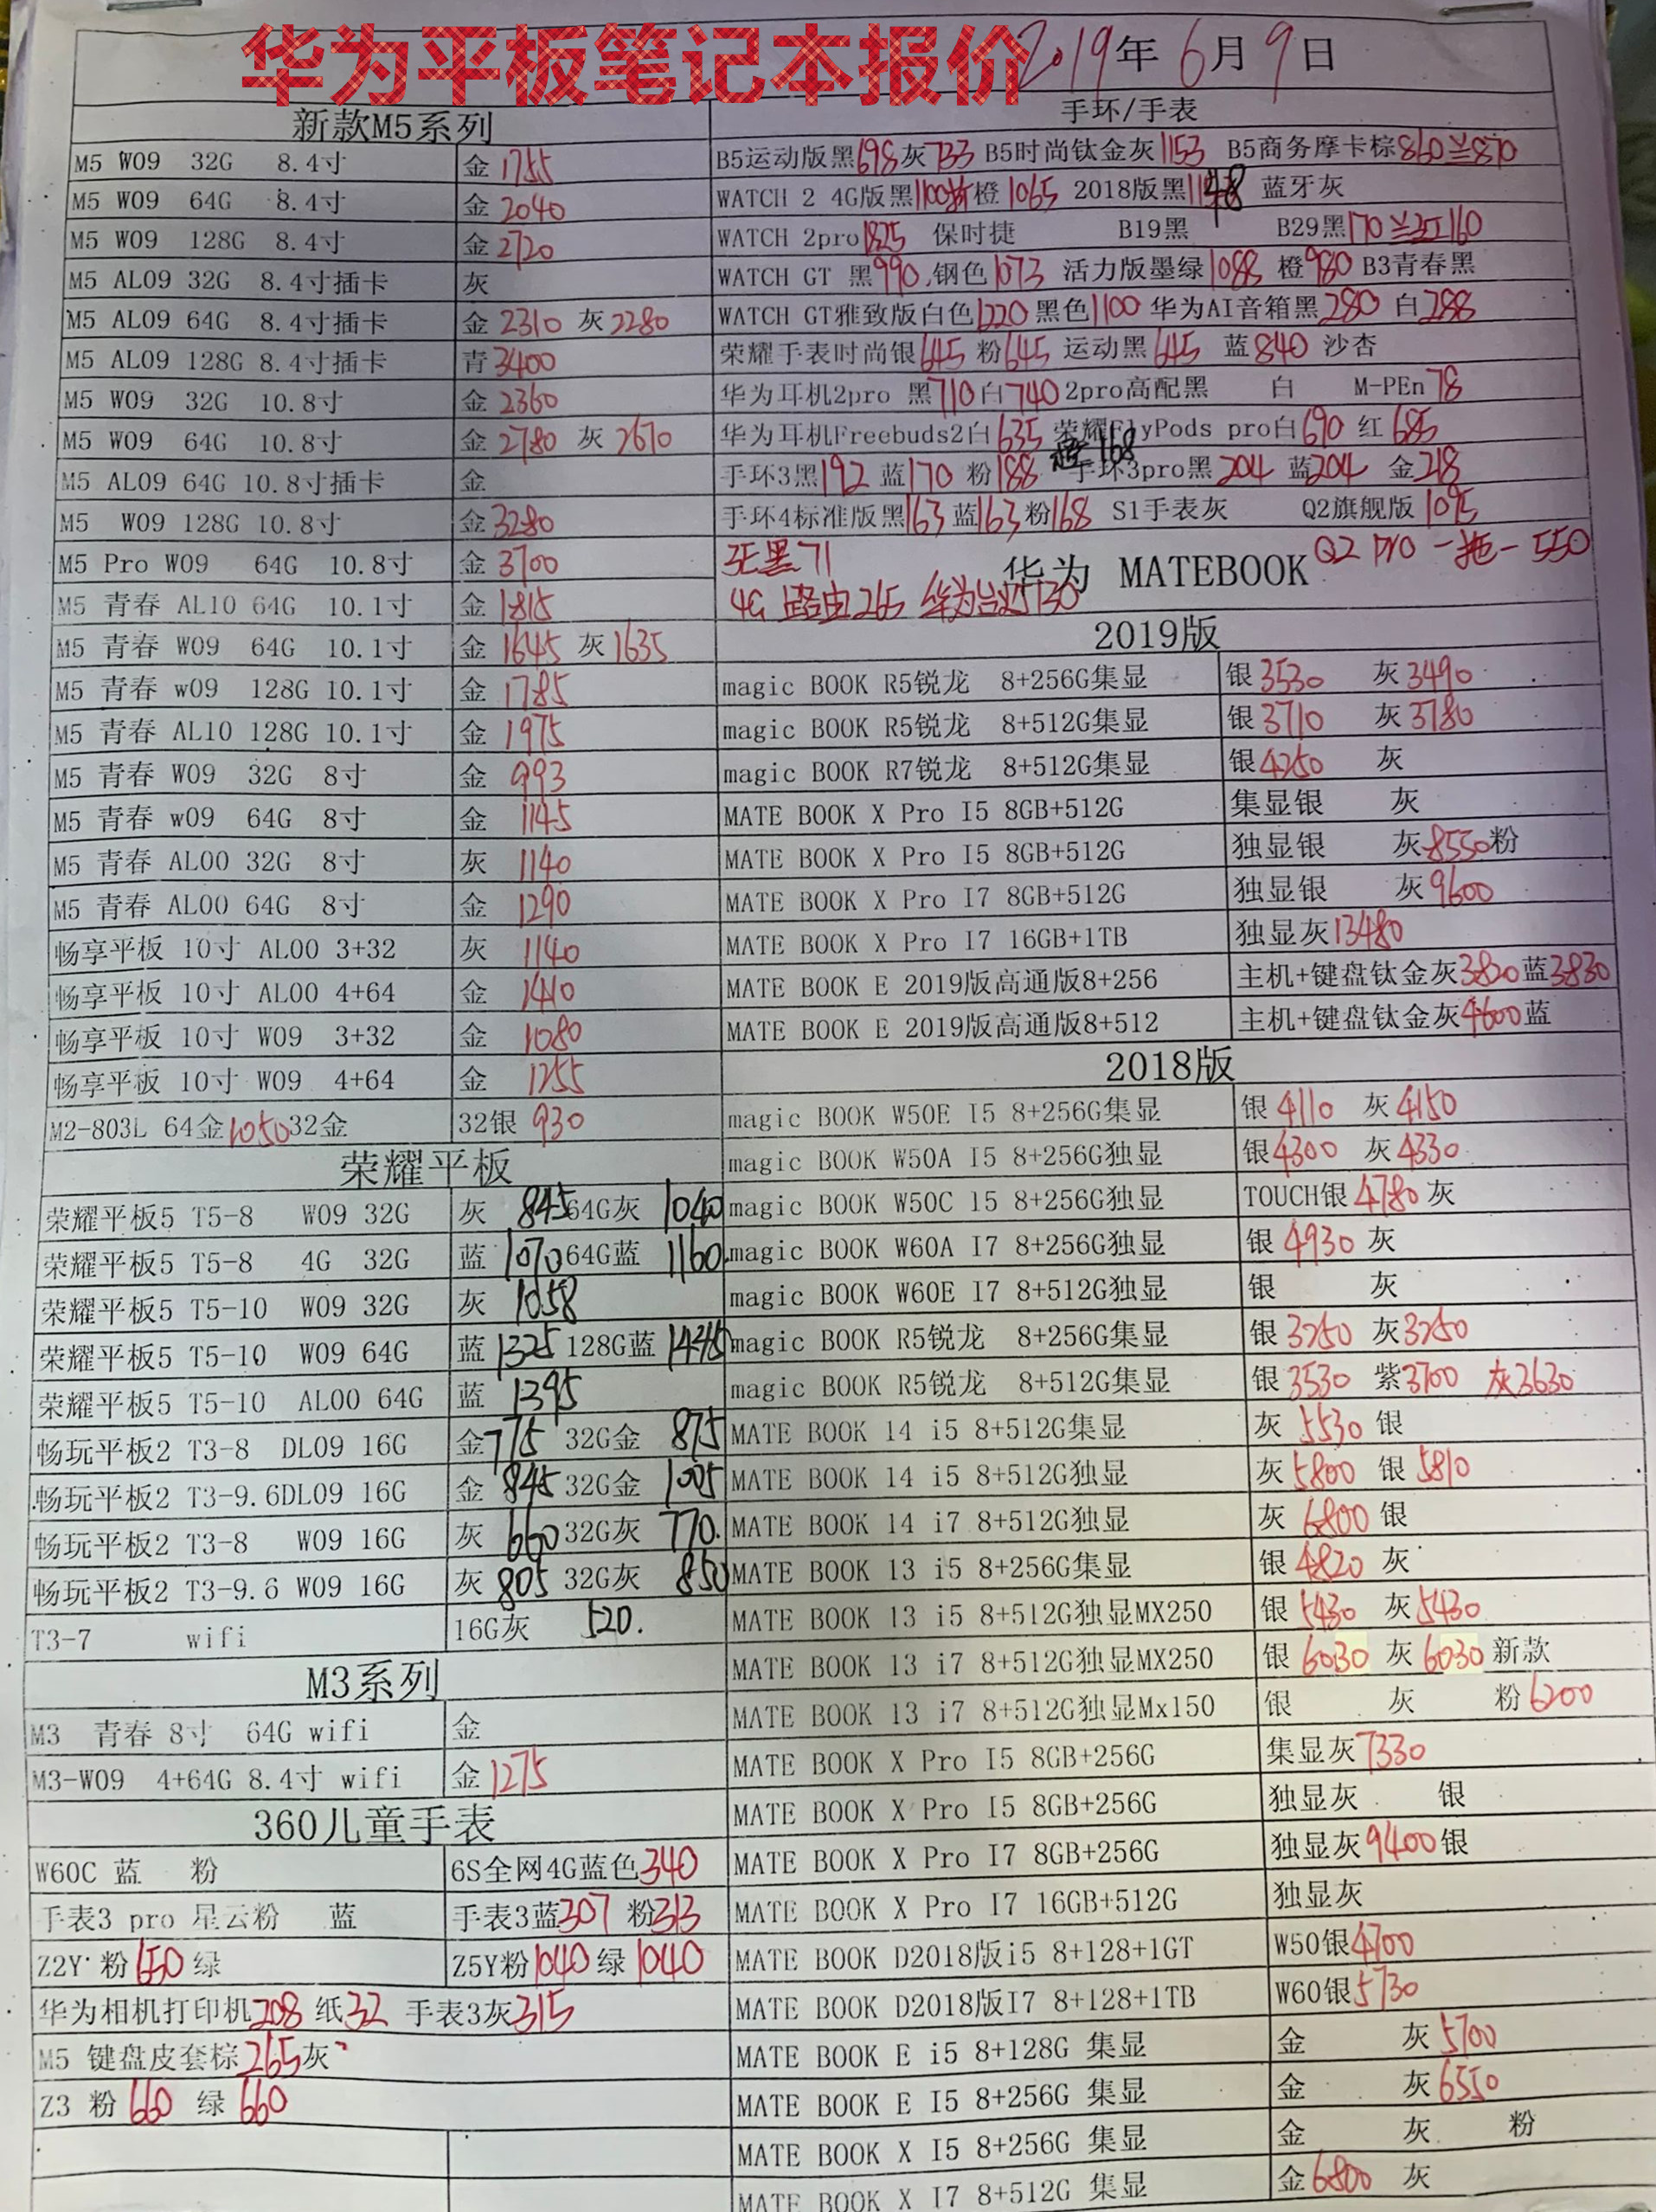 华为平板笔记本报价
2019年6月9日
新款M5系列
M5 W09 32G 8.4寸 金 1755
M5 W09 64G 8.4寸 金 2040
M5 W09 128G 8.4寸 金 2720
M5 AL09 32G 8.4寸插卡 灰
M5 AL09 64G 8.4寸插卡 金 2310 灰 2280
M5 AL09 128G 8.4寸插卡 青 3400
M5 W09 32G 10.8寸 金 2360
M5 W09 64G 10.8寸 金 2780 灰 2670
M5 AL09 64G 10.8寸插卡 金
M5 W09 128G 10.8寸 金 3280
M5 Pro W09 64G 10.8寸 金 3700
M5 青春 AL10 64G 10.1寸 金 1815
M5 青春 W09 64G 10.1寸 金 1645 灰 1635
M5 青春 w09 128G 10.1寸 金 1785
M5 青春 AL10 128G 10.1寸 金 1975
M5 青春 W09 32G 8寸 金 993
M5 青春 w09 64G 8寸 金 1145
M5 青春 AL00 32G 8寸 灰 1140
M5 青春 AL00 64G 8寸 金 1290
畅享平板 10寸 AL00 3+32 灰 1140
畅享平板 10寸 AL00 4+64 金 1410
畅享平板 10寸 W09 3+32 金 1080
畅享平板 10寸 W09 4+64 金 1255
M2-803L 64金 1050 32金 32银 930
荣耀平板
荣耀平板5 T5-8 W09 32G 灰 845 64G灰 1040
荣耀平板5 T5-8 4G 32G 蓝 1070 64G蓝 1160
荣耀平板5 T5-10 W09 32G 灰 1058
荣耀平板5 T5-10 W09 64G 蓝 1325 128G蓝
荣耀平板5 T5-10 AL00 64G 蓝 1395
畅玩平板2 T3-8 DL09 16G 金 775 32G金 875
畅玩平板2 T3-9.6DL09 16G 金 845 32G金 1005
畅玩平板2 T3-8 W09 16G 灰 660 32G灰 770.
畅玩平板2 T3-9.6 W09 16G 灰 805 32G灰 850
T3-7 wifi 16G灰 520.
M3系列
M3 青春 8寸 64G wifi 金
M3-W09 4+64G 8.4寸 wifi 金 1275
360儿童手表
W60C 蓝 粉 6S全网4G蓝色 340
手表3 pro 星云粉 蓝 手表3蓝 307 粉 313
Z2Y 粉 650 绿 Z5Y粉 1040 绿 1040
华为相机打印机 208 纸 32 手表3灰 315
M5 键盘皮套棕 265 灰
Z3 粉 660 绿 660
手环/手表
B5运动版黑 698 灰 733 B5时尚钛金灰 1153 B5商务摩卡棕 860 兰 870
WATCH 2 4G版黑 1100 橙 1065 2018版黑 蓝牙灰
WATCH 2pro 1825 保时捷 B19黑 B29黑 170 兰红 160
WATCH GT 黑 990 钢色 1073 活力版墨绿 1088 橙 980 B3青春黑
WATCH GT雅致版白色 1220 黑色 1100 华为AI音箱黑 280 白 288
荣耀手表时尚银 645 粉 645 运动黑 645 蓝 840 沙杏
华为耳机2pro 黑 710 白 740 2pro高配黑 白 M-PEn 78
华为耳机Freebuds2白 635 荣耀FlyPods pro白 690 红 685
手环3黑 192 蓝 170 粉 188 168 手环3pro黑 204 蓝 204 金 218
手环4标准版黑 163 蓝 163 粉 168 S1手表灰 Q2旗舰版 1095
黑 71
华为 MATEBOOK Q2 pro 一拖一 550
4G 路由 265 华为 130
2019版
magic BOOK R5锐龙 8+256G集显 银 3530 灰 3490
magic BOOK R5锐龙 8+512G集显 银 3710 灰 3780
magic BOOK R7锐龙 8+512G集显 银 4250 灰
MATE BOOK X Pro I5 8GB+512G 集显银 灰
MATE BOOK X Pro I5 8GB+512G 独显银 灰 8550 粉
MATE BOOK X Pro I7 8GB+512G 独显银 灰 9600
MATE BOOK X Pro I7 16GB+1TB 独显灰 13480
MATE BOOK E 2019版高通版8+256 主机+键盘钛金灰 3820 蓝 3830
MATE BOOK E 2019版高通版8+512 主机+键盘钛金灰 4600 蓝
2018版
magic BOOK W50E I5 8+256G集显 银 4110 灰 4150
magic BOOK W50A I5 8+256G独显 银 4300 灰 4330
magic BOOK W50C 15 8+256G独显 TOUCH银 4780 灰
magic BOOK W60A I7 8+256G独显 银 4930 灰
magic BOOK W60E I7 8+512G独显 银 灰
magic BOOK R5锐龙 8+256G集显 银 3250 灰 3250
magic BOOK R5锐龙 8+512G集显 银 3530 紫 3700 灰 3630
MATE BOOK 14 i5 8+512G集显 灰 5530 银
MATE BOOK 14 i5 8+512G独显 灰 5800 银 5810
MATE BOOK 14 i7 8+512G独显 灰 6800 银
MATE BOOK 13 i5 8+256G集显 银 4820 灰
MATE BOOK 13 i5 8+512G独显MX250 银 5430 灰 5430
MATE BOOK 13 i7 8+512G独显MX250 银 6030 灰 6030 新款
MATE BOOK 13 i7 8+512G独显Mx150 银 灰 粉 6200
MATE BOOK X Pro I5 8GB+256G 集显灰 7330
MATE BOOK X Pro I5 8GB+256G 独显灰 银
MATE BOOK X Pro I7 8GB+256G 独显灰 9400 银
MATE BOOK X Pro I7 16GB+512G 独显灰
MATE BOOK D2018版i5 8+128+1GT W50银 4700
MATE BOOK D2018版I7 8+128+1TB W60银 5730
MATE BOOK E i5 8+128G 集显 金 灰 5700
MATE BOOK E I5 8+256G 集显 金 灰 6550
MATE BOOK X I5 8+256G 集显 金 灰 粉
MATE BOOK X I7 8+512G 集显 金 6800 灰